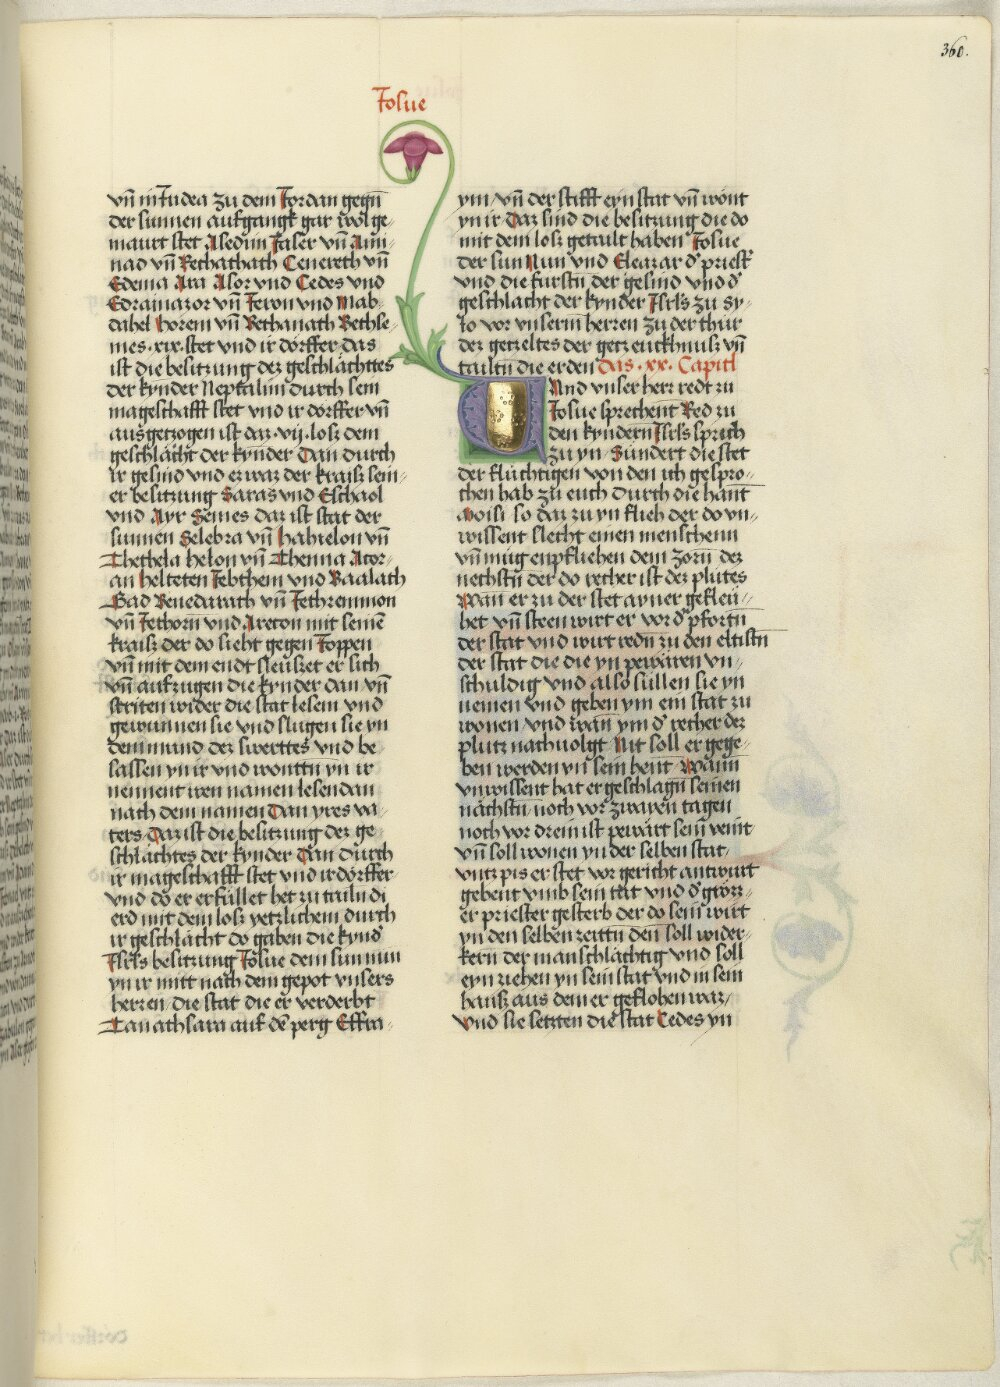 360.
Josue
vn̄ in Judea zu dem Jordan gegn̄
der sunnen aufgangk gar wol ge-
maurt stet Asedim Jaser vn̄ Ami-
nad vn̄ Rethathath Cenereth vn̄
Edema Ara Asor und Cedes vnd
Edraimazor vn̄ Jeron vnd Mab-
dahel horem vn̄ Bethanath Bethse-
mes .xix. stet vnd ir dörffer das
ist die besitzung dez geschlächttes
der kynder Neptalim durch sein
mageschafft stet vnd ir dorffer vn̄
ausgetzogen ist daz .vij. losz dem
geschlächt der kynder Dan durch
ir gesind vnd er waz der kraisz sein-
er besitzung Saras vnd Eschaol
vnd Ayr Semes daz ist stat der
sunnen Selebra vn̄ habielon vn̄
Thethela helon vn̄ Thenna Acor-
an helteten Jebthem vnd Baalath
Bad Benedarath vn̄ Jethremmon
vn̄ Jethorn vnd Areton mit seinē
kraisz der do sieht gegen Joppen
vn̄ mit dem endt sleuszet er sich
vn̄ aufzugen die kynder dan vn̄
striten wider die stat lesem vnd
gewunnen sie vnd slugen sie yn
dem mund dez swerttes vnd be
sassen yn ir vnd wonttn̄ yn ir
nennent iren namen lesendan
nach dem namen Dan yres va-
ters. Daz ist die besitzung dez ge
schlächtes der kynder Dan durch
ir mageschafft stet vnd ir dörffer
vnd do er erfüllet het zu tailn di
erd mit dem losz yetzlichem durch
ir geschlächt do gaben die kynd̄
Jsrl̄s besitzung Josue dem sun nun
yn ir mitt nach dem gepot vnsers
herren die stat die er verderbt
Tanathsara auf dē perg Effra-
ym / vn̄ der stifft eyn stat vn̄ wont
yn ir Daz sind die besitzung die do
mit dem losz getailt haben Josue
der sun Nun vnd Eleazar d̄ priest̄
vnd die fürstn̄ der gesind vnd d̄
geschlächt der kynder Jsrl̄s zu sy-
lo vor vnserm herren zu der thür
dez getzeltes der getzeucknusz vn̄
tailtn̄ die erden Das .xx. Capitl
Und vnser herr redt zu
Josue sprechent Red zu
den kyndern Jsrl̄s sprich
zu yn Sundert die stet
der flüchtigen von den ich gespro-
chen hab zu euch durch die hant
Moisi so daz zu yn flieh der do vn-
wissent slecht einen menschenn
vn̄ müg enpfliehen dem zorn̄ dez
nechstn̄ der do recher ist dez plutes
Wan er zu der stet ayner gefleu-
het vn̄ steen wirt er vor d̄ pfortn̄
der stat vnd wirt redn̄ zu den eltistn̄
der stat die die yn pewären vn-
schuldig vnd allso süllen sie yn
nemen vnd geben ym ein stat zu
wonen vnd wan ym d̄ recher dez
plutz nachuolgt Nit soll er gege-
ben werden yn sein hent Wann
vnwissent hat er geschlagn̄ seinen
nächstn̄ noch vor zwayen tagen
noch vor drein ist pewärt sein veint
vn̄ soll wonen yn der selben stat
vntz pis er stet vor gericht antwurt
gebent vmb sein tat vnd d̄ grözz-
er priester gesterb der do sein wirt
yn den selben zeittn̄ den̄ soll wider-
kern der manschlächtig vnd soll
eyn ziehen yn sein stat vnd in sein
hausz aus dem er geflohen waz /
Vnd sie setzten die stat Cedes yn